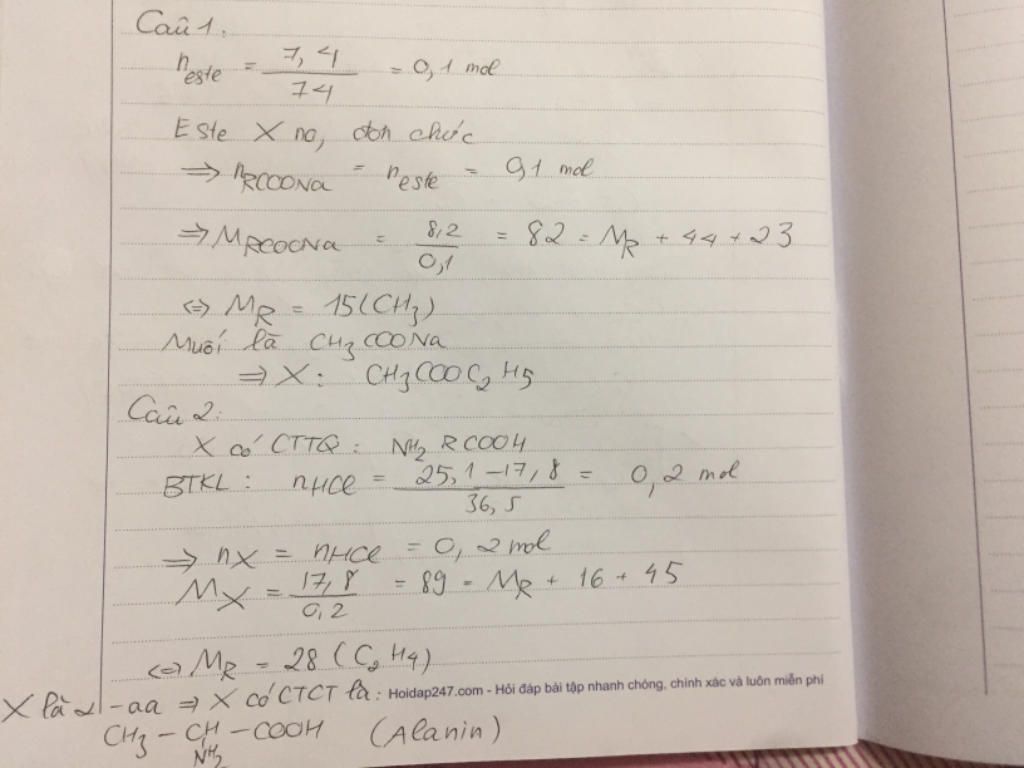 Câu 1.
n este = 7,4 / 74 = 0,1 mol
Este X no, đơn chức
⇒ nRCOONa = n este = 0,1 mol
⇒ MRCOONa = 8,2 / 0,1 = 82 = MR + 44 + 23
⇔ MR = 15 (CH3)
Muối là CH3COONa
⇒ X: CH3COOC2H5
Câu 2.
X có CTTQ: NH2RCOOH
BTKL: nHCl = 25,1-17,8 / 36,5 = 0,2 mol
⇒ nX = nHCl = 0,2 mol
MX = 17,8 / 0,2 = 89 = MR + 16 + 45
⇔ MR = 28 (C2H4)
X là α-aa ⇒ X có CTCT là: Hoidap247.com - Hỏi đáp bài tập nhanh chóng, chính xác và luôn miễn phí
CH3-CH-COOH (Alanin)
NH2